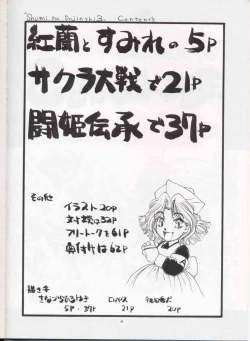 "Shumi no Dojinshi 3. Contents
紅蘭とすみれの5P
サクラ大戦で21P
闘姫伝承で37P
その他
イラスト20P
対談は52P
フリートークを61P
奥付けは62P
描き手
5P・37P
21P
20P